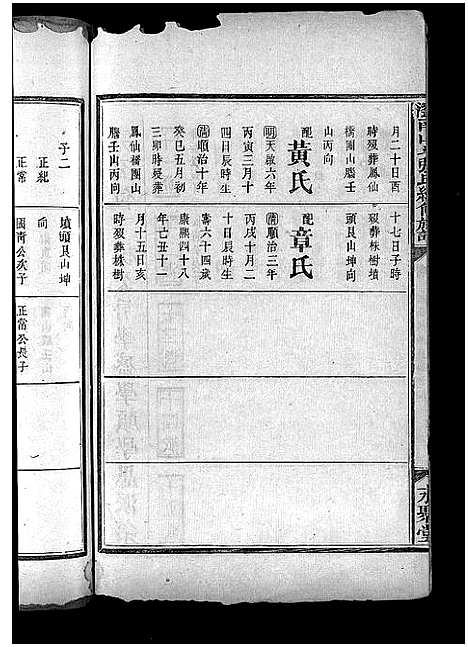 月二十日酉
時歿葬鳳仙
橋團山腦壬
山丙向
配黃氏
明天啟六年
丙寅三月十
四日辰時生
清順治十年
癸巳五月初
三卯時歿葬
鳳仙橋團山
腦壬山丙向
十七日子時
歿葬株樹墳
頭艮山坤向
配章氏
清順治三年
丙戌十月二
十日辰時生
康熙四十八
年己丑十一
月十五日亥
時歿葬株樹
壽六十四歲
墳頭艮山坤
向
子二
正紀
正常
國南公次子
正常公長子
永聚堂